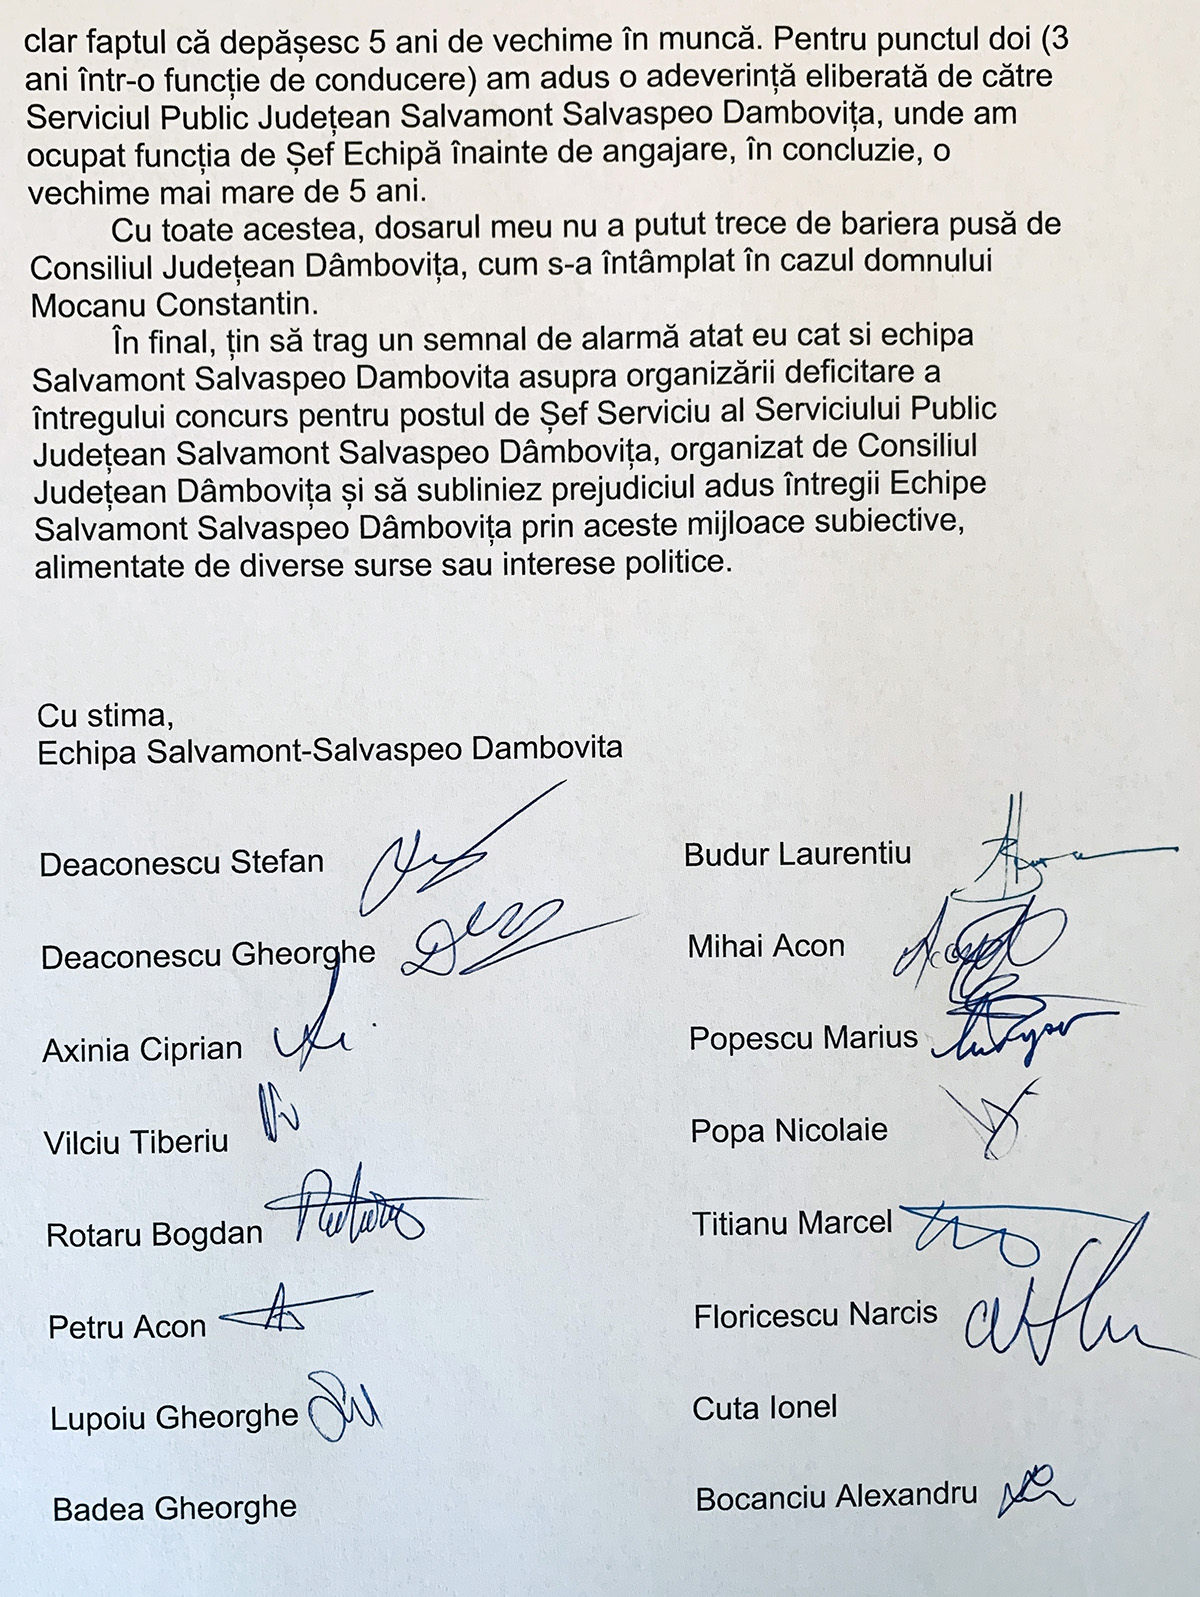 clar faptul că depășesc 5 ani de vechime în muncă. Pentru punctul doi (3
ani într-o funcție de conducere) am adus o adeverință eliberată de către
Serviciul Public Județean Salvamont Salvaspeo Dambovița, unde am
ocupat funcția de Șef Echipă înainte de angajare, în concluzie, o
vechime mai mare de 5 ani.
Cu toate acestea, dosarul meu nu a putut trece de bariera pusă de
Consiliul Județean Dâmbovița, cum s-a întâmplat în cazul domnului
Mocanu Constantin.
În final, țin să trag un semnal de alarmă atat eu cat si echipa
Salvamont Salvaspeo Dambovita asupra organizării deficitare a
întregului concurs pentru postul de Șef Serviciu al Serviciului Public
Județean Salvamont Salvaspeo Dâmbovița, organizat de Consiliul
Județean Dâmbovița și să subliniez prejudiciul adus întregii Echipe
Salvamont Salvaspeo Dâmbovița prin aceste mijloace subiective,
alimentate de diverse surse sau interese politice.
Cu stima,
Echipa Salvamont-Salvaspeo Dambovita
Deaconescu Stefan
Deaconescu Gheorghe
Axinia Ciprian
Vilciu Tiberiu
Rotaru Bogdan
Petru Acon
Lupoiu Gheorghe
Badea Gheorghe
Budur Laurentiu
Mihai Acon
Popescu Marius
Popa Nicolaie
Titianu Marcel
Floricescu Narcis
Cuta Ionel
Bocanciu Alexandru